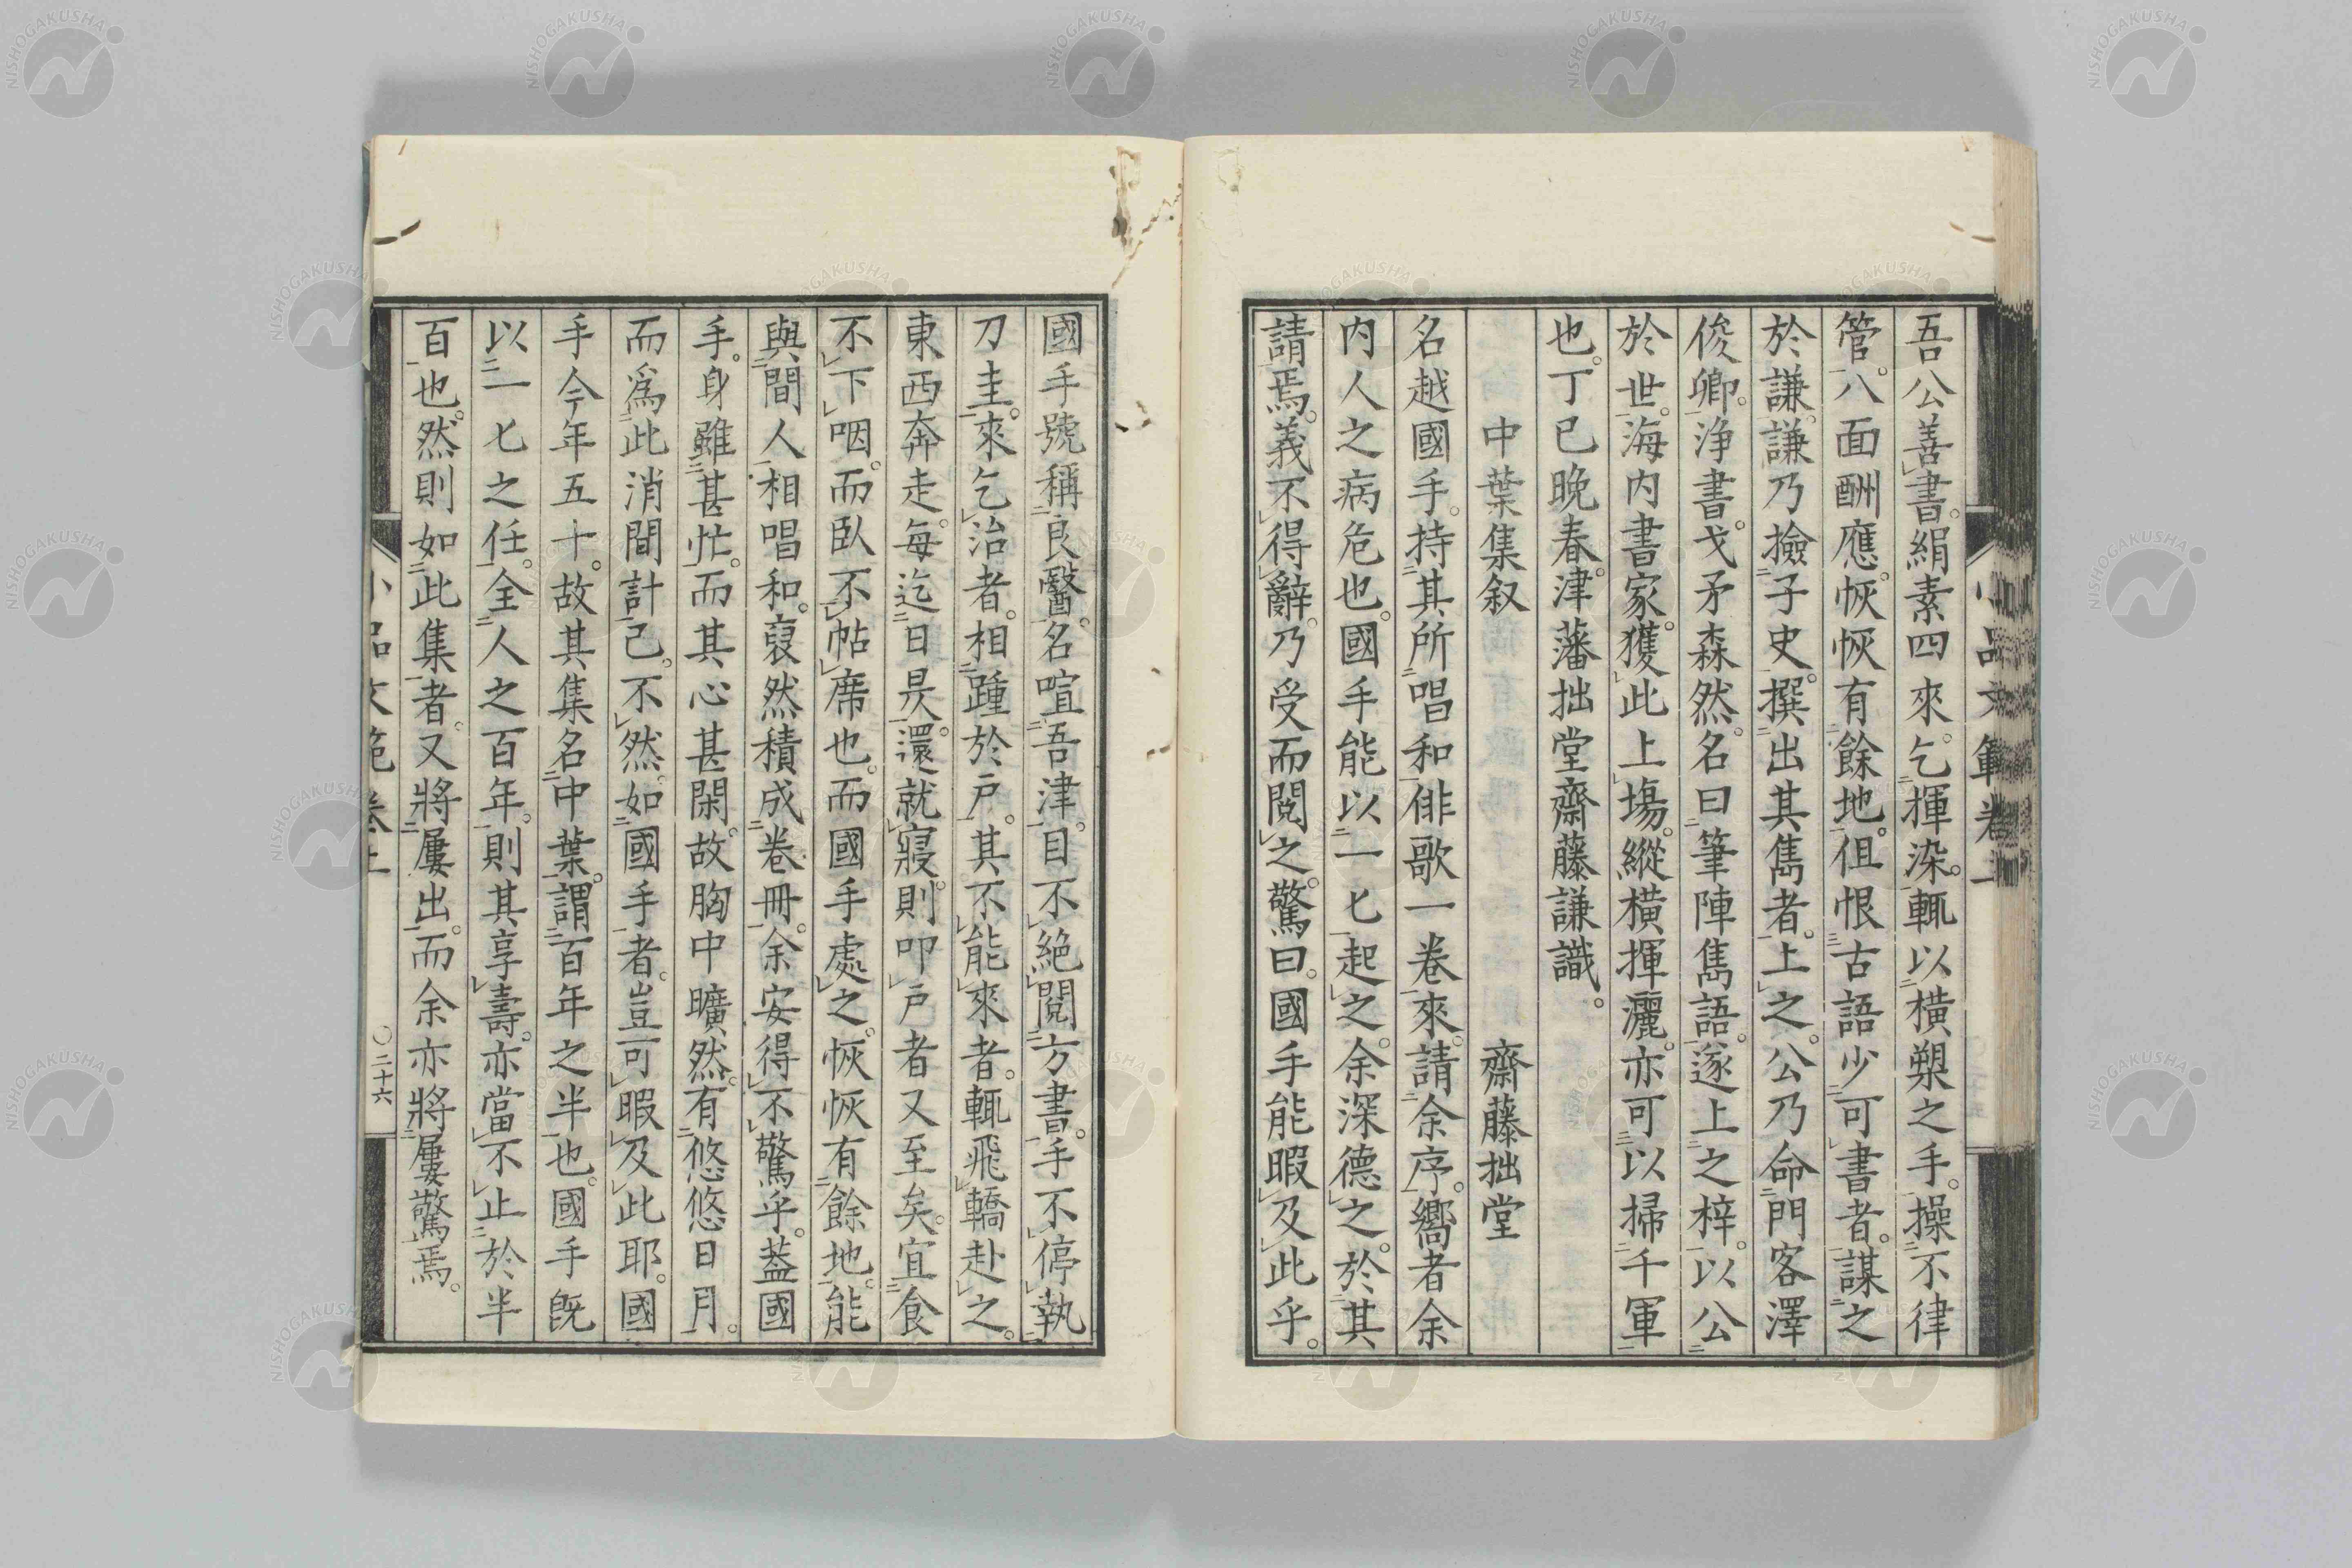 吾公善書。絹素四來。乞揮染。輒以橫槊之手。操不律
管。八面酬應。恢恢有餘地。但恨古語少可書者。謀之
於謙。謙乃撿子史。撰出其雋者。上之。公乃命門客澤
俊卿。浄書。戈矛森然。名曰筆陣雋語。遂上之梓。以公
於世。海内書家。獲此上塲。縱橫揮灑。亦可以掃千軍
也。丁巳晩春。津藩拙堂齋藤謙識。
中葉集叙 齋藤拙堂
名越國手。持其所唱和俳歌一卷來。請余序。嚮者余
内人之病危也。國手能以一匕起之。余深德之。於其
請焉。義不得辭。乃受而閲之。驚曰。國手能暇及此乎。
國手號稱良醫。名喧吾津。目不絶閲方書。手不停執
刀圭。來乞治者。相踵於戸。其不能來者。輒飛轎赴之。
東西奔走。毎迄日昃還。還就寢。則叩戸者又至矣。宜食
不下咽。而臥不帖席也。而國手處之。恢恢有餘地。能
與間人相唱和。裒然積成卷冊。余安得不驚乎。葢國
手。身雖甚忙。而其心甚閑。故胸中曠然。有悠悠日月。
而爲此消間計已。不然如國手者。豈可暇及此耶。國
手今年五十。故其集名中葉。謂百年之半也。國手既
以一匕之任。全人之百年。則其享壽。亦當不止於半
百也。然則如此集者。又將屢出。而余亦將屢驚焉。
小品文範 卷上
〇二十六